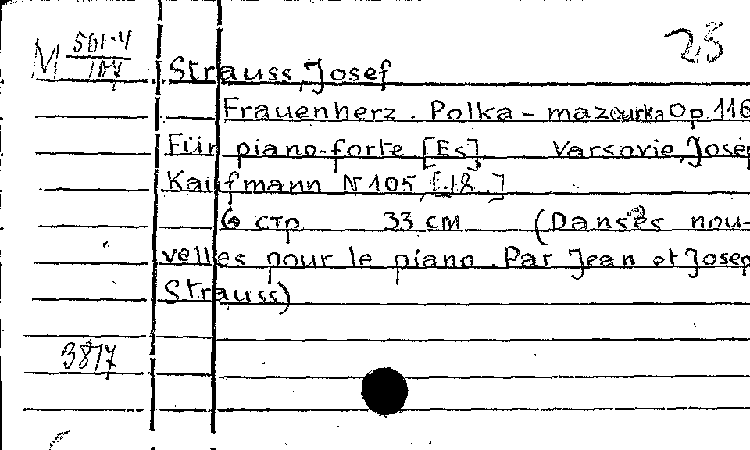 23
M 561-4
Strauss, Josef
Frauenherz. Polka-mazourka Op. 116
Für piano-forte [Es] Varsovie, Josep
Kaufmann N 105, [18 .]
6 стр 33 см (Danses nou-
velles pour le piano. Par Jean et Josep
Strauss)
3817